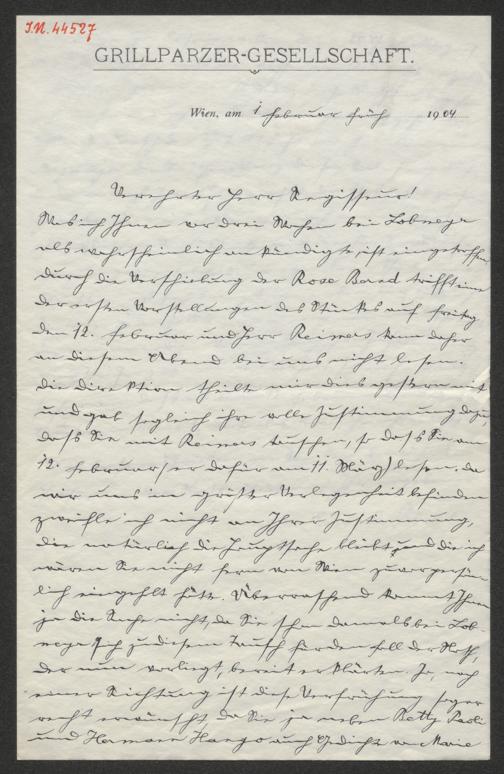 I.N. 44527
GRILLPARZER-GESELLSCHAFT.
Wien, am 1 Februar früh 1904
Verehrter Herr Regisseur!
Was ich Ihnen vor drei Wochen bei Lobmeyr
als wahrscheinlich ankündigte, ist eingetroffen
durch die Verschiebung der Rose Bernd trifft eine
der ersten Vorstellungen des Stückes auf Freitag
den 12. Februar und Herr Reimers kann daher
an diesem Abend bei uns nicht lesen.
Die Direktion theilte mir dies gestern mit
und gab sogleich ihre volle Zustimmung dazu,
dass Sie mit Reimers tauschen, so dass Sie am
12. Februar (er dafür am 11. März) lesen. Da
wir uns in größter Verlegenheit befinden
zweifle ich nicht an Ihrer Zustimmung,
die natürlich die Hauptsache bleibt und die ich
wären Sie nicht fern von Wien zuvor persön
lich eingeholt hätte. Überraschend kommt Ihnen
ja die Sache nicht, da Sie schon damals bei Lob-
meyr sich zu diesem Tausch für den Fall der Noth,
der nun vorliegt, bereit erklärten. Ja, nach
einer Richtung ist diese Verfrühung sogar
recht erwünscht, da Sie ja neben Betty Paoli
und Hermann Hango auch Gedichte von Marie